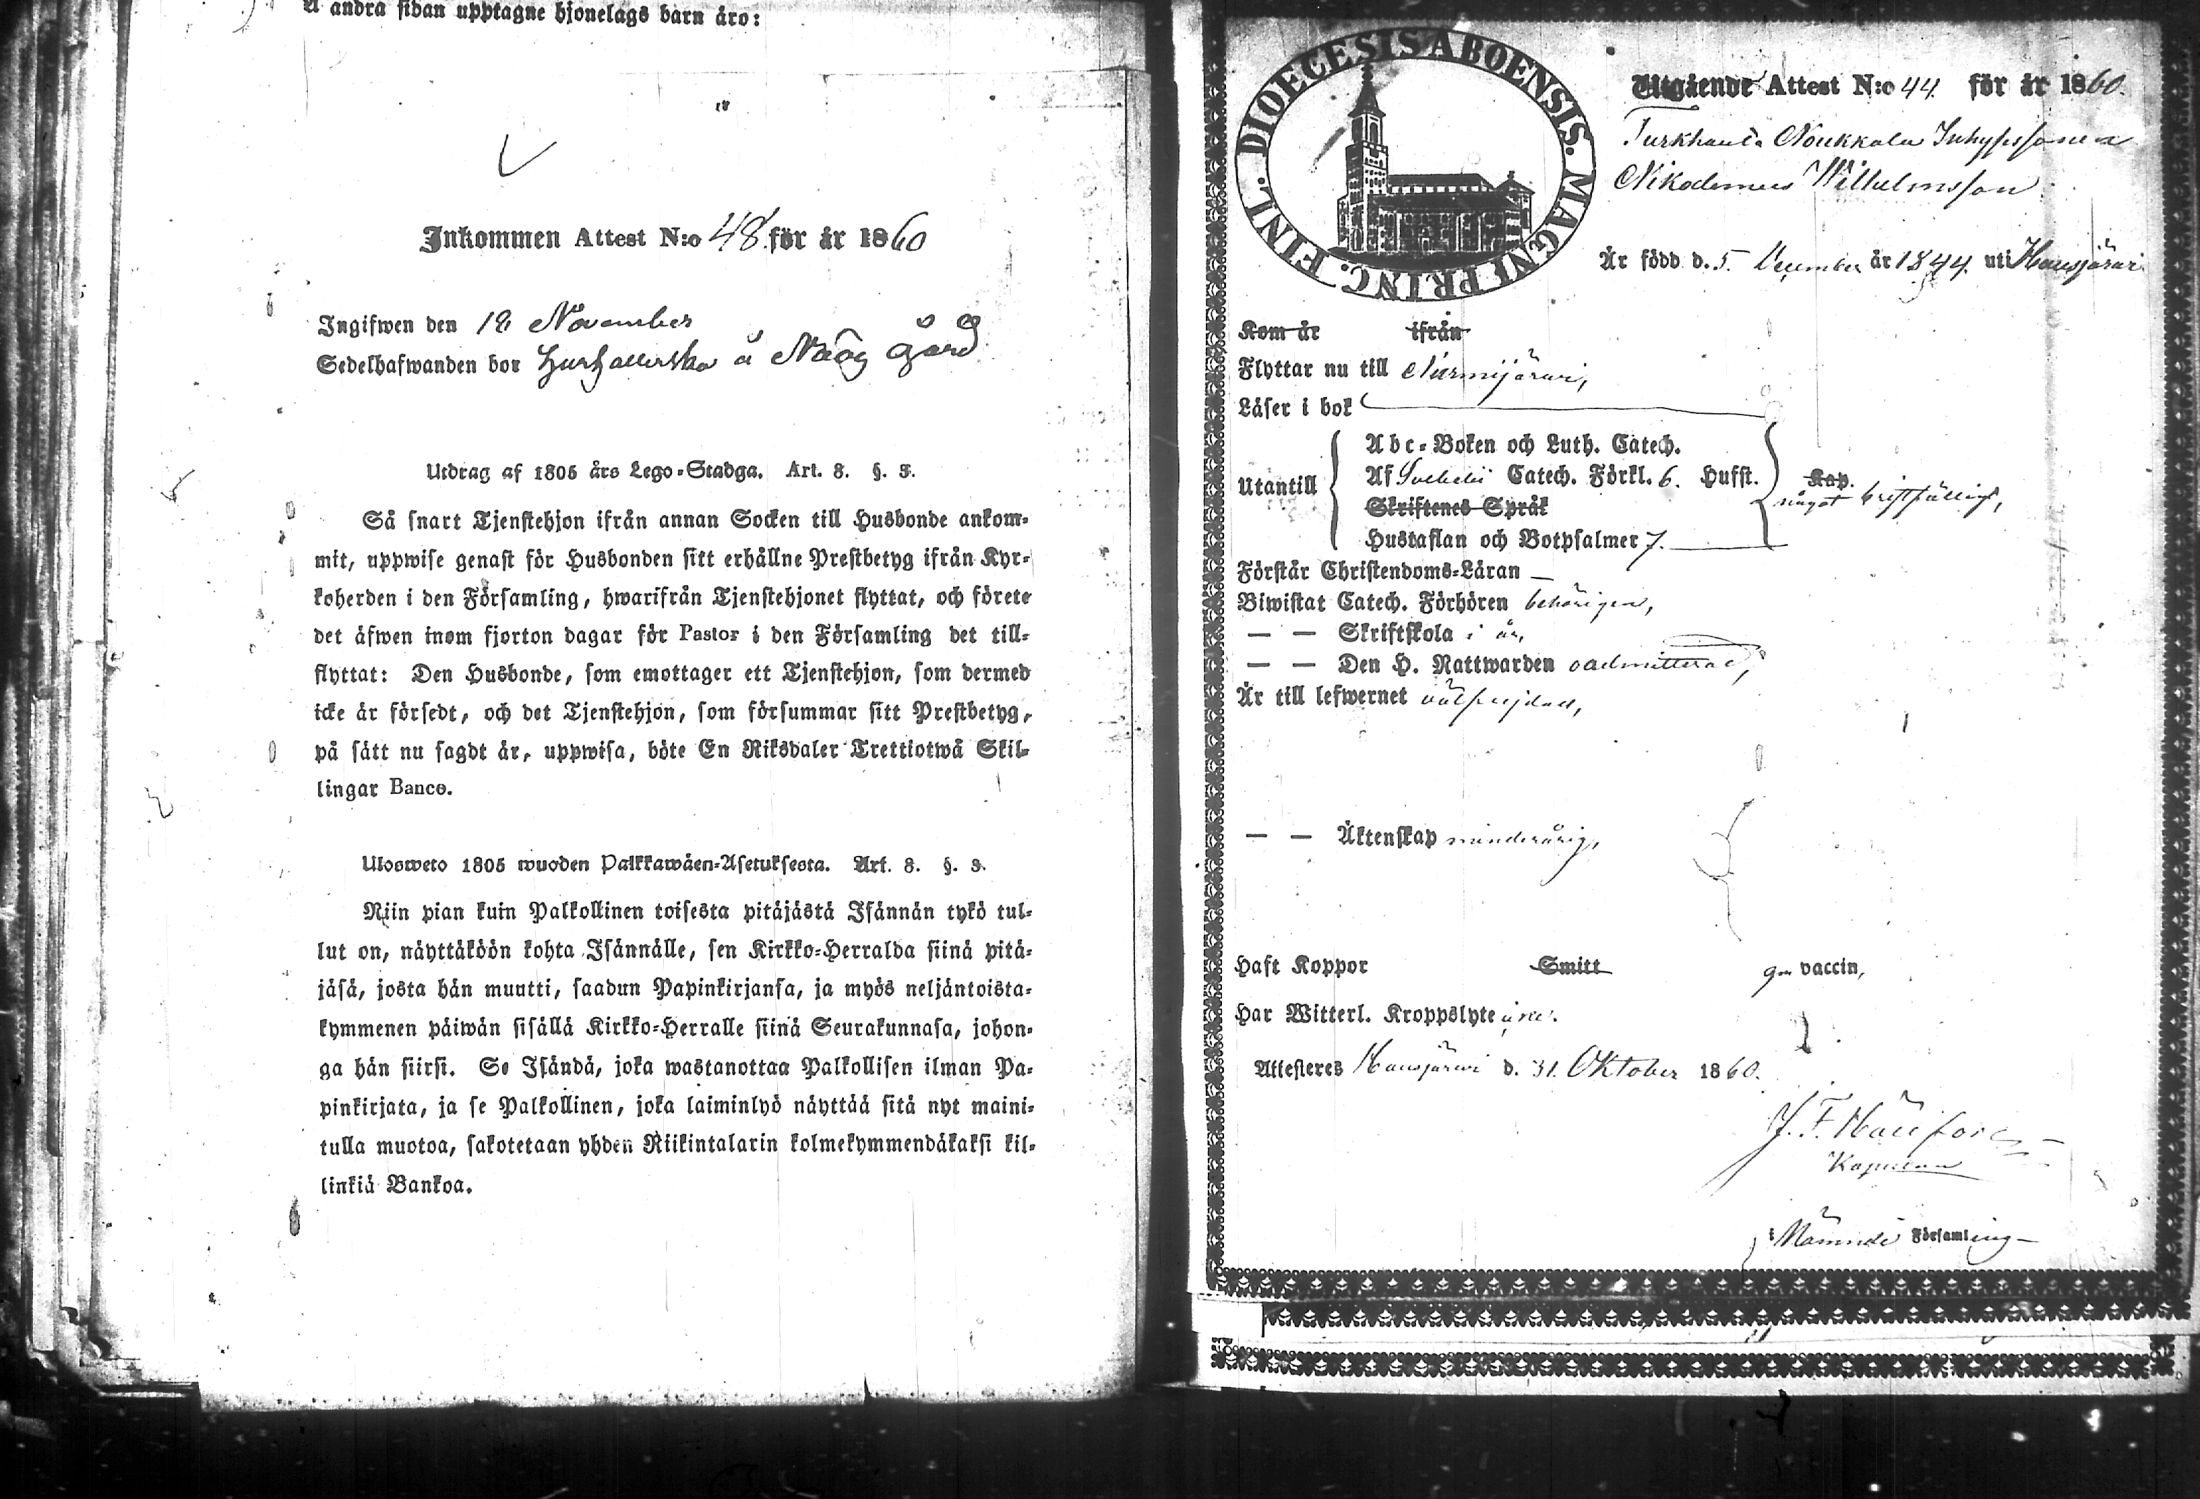 Å andra sidan upptagne hjonelags barn äro:
Inkommen Attest N:o 48 för år 1860
Ingifwen den 18 November
Sedelhafwanden bor å gård
Utdrag af 1805 års Lego-Stadga. Art. 8. §. 3.
Så snart Tjenstehjon ifrån annan Socken till Husbonde ankom-
mit, uppwise genast för Husbonden sitt erhållne Prestbetyg ifrån Kyr-
koherden i den Församling, hwarifrån Tjenstehjonet flyttat, och förete
det äfwen inom fjorton dagar för Pastor i den Församling det till-
flyttat: Den Husbonde, som emottager ett Tjenstehjon, som dermed
icke är försedt, och det Tjenstehjon, som försummar sitt Prestbetyg,
på sätt nu sagdt är, uppwisa, böte En Riksdaler Trettiotwå Skil-
lingar Banco.
Ulosweto 1805 wuoden Palkkawäen-Asetuksesta. Art. 8. §. 3.
Niin pian kuin Palkollinen toisesta pitäjästä Isännän tykö tul-
lut on, näyttäköön kohta Isännälle, sen Kirkko-Herralda siinä pitä-
jäsä, josta hän muutti, saadun Papinkirjansa, ja myös neljäntoista-
kymmenen päiwän sisällä Kirkko-Herralle siinä Seurakunnasa, johon-
ga hän siirsi. Se Isändä, joka wastanottaa Palkollisen ilman Pa-
pinkirjata, ja se Palkollinen, joka laiminlyö näyttää sitä nyt maini-
tulla muotoa, sakotetaan yhden Riikintalarin kolmekymmendäkaksi kil-
linkiä Bankoa.
DIOECESIS ABOENSIS. MAGNI PRINC. FINL.
Utgående Attest N:o 44. för år 1860.
Turkhauta Noukkala
Nikodemus Wilhelmsson
Är född d. 5. December år 1844. uti Hausjärvi
Kom år ifrån
Flyttar nu till Nurmijärvi,
Läser i bok
Abc-Boken och Luth. Catech.
Utantill Af Svebelii Catech. Förkl. 6. Hufst. Kap.
något bristfälligt,
Skriftenes Språk
Hustaflan och Botpsalmer 7.
Förstår Christendoms-Läran —
Biwistat Catech. Förhören behörigen,
— — Skriftskola i år,
— — Den H. Nattwarden oadmitterad,
Är till lefwernet välfrejdad,
— — Äktenskap minderårig,
Haft Koppor Smitt gm vaccin,
Har Witterl. Kroppslyte
Attesteres Hausjärvi d. 31. Oktober 1860.
J. F.
Kapellan
i Församling